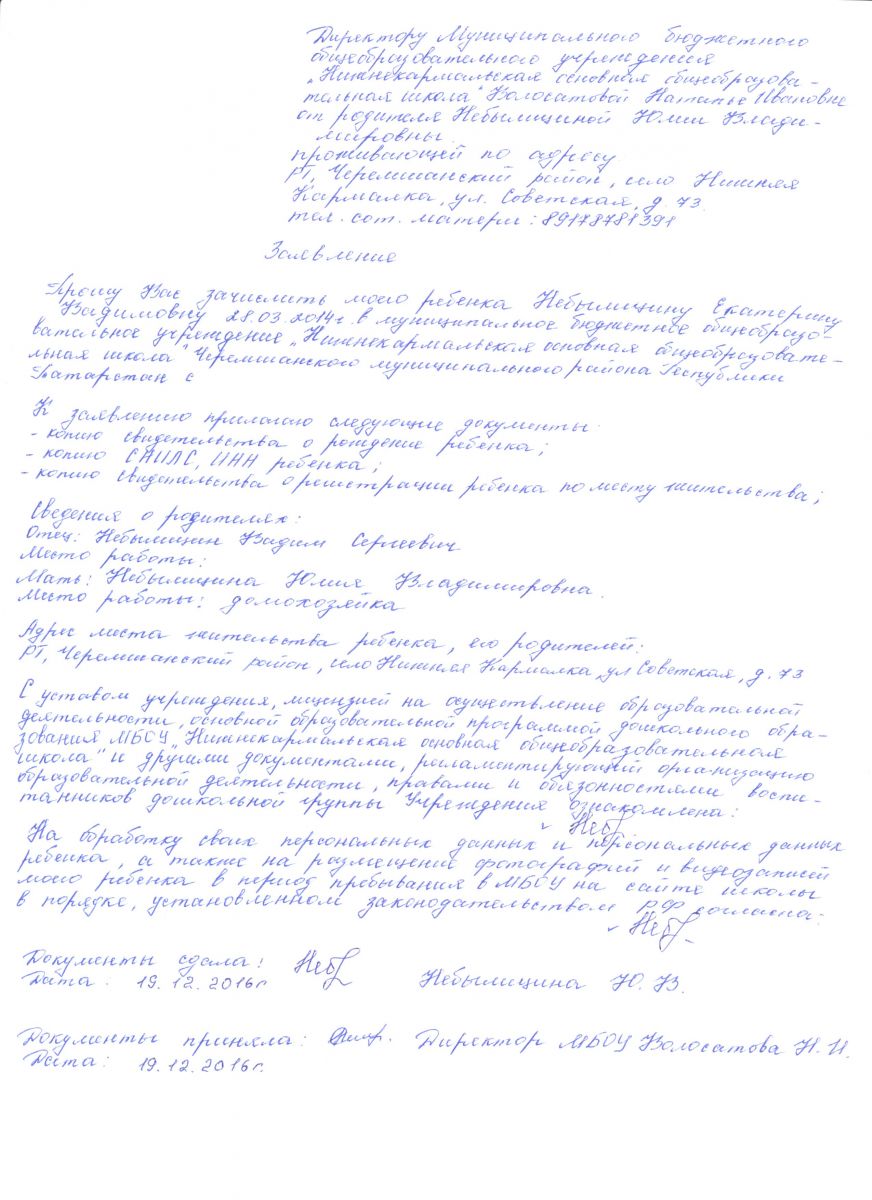 Директору Муниципального бюджетного
общеобразовательного учреждения
„Нижнекармальская основная общеобразова-
тельная школа" Волосатовой Наталье Ивановне
от родителя Небылициной Юлии Влади-
мировны
проживающей по адресу
РТ, Черемшанский район, село Нижняя
Кармалка, ул. Советская, д. 73.
тел. сот. матери: 89178781391
Заявление
Прошу Вас зачислить моего ребенка Небылицину Екатерину
Вадимовну 28.03.2014г. в муниципальное бюджетное общеобразо-
вательное учреждение „Нижнекармальская основная общеобразовате-
льная школа" Черемшанского муниципального района Республики
Татарстан с
К заявлению прилагаю следующие документы:
- копию свидетельства о рождение ребенка;
- копию СНИЛС, ИНН ребенка;
- копию свидетельства о регистрации ребенка по месту жительства;
Сведения о родителях:
Отец: Небылицин Вадим Сергеевич
Место работы:
Мать: Небылицина Юлия Владимировна.
Место работы: домохозяйка
Адрес места жительства ребенка, его родителей:
РТ, Черемшанский район, село Нижняя Кармалка, ул Советская, д. 73
С уставом учреждения, лицензией на осуществление образовательной
деятельности, основной образовательной программой дошкольного обра-
зования МБОУ „Нижнекармальская основная общеобразовательная
школа" и другими документами, регламентирующей организацию
образовательной деятельности, правами и обязонностями воспи-
танников дошкольной группы Учреждения ознакомлена:
Неб
На бработку своих персональных данных и персональных данных
ребенка, а также на размещение фотографий и видеозаписей
моего ребенка в период пребывания в МБОУ на сайте школы
в порядке, установленном законодательством РФ согласна:
Неб
Документы сдала: Неб Небылицина Ю. В.
Дата. 19.12.2016г
Документы приняла: Директор МБОУ Волосатова Н. И.
Дата: 19.12.2016г.